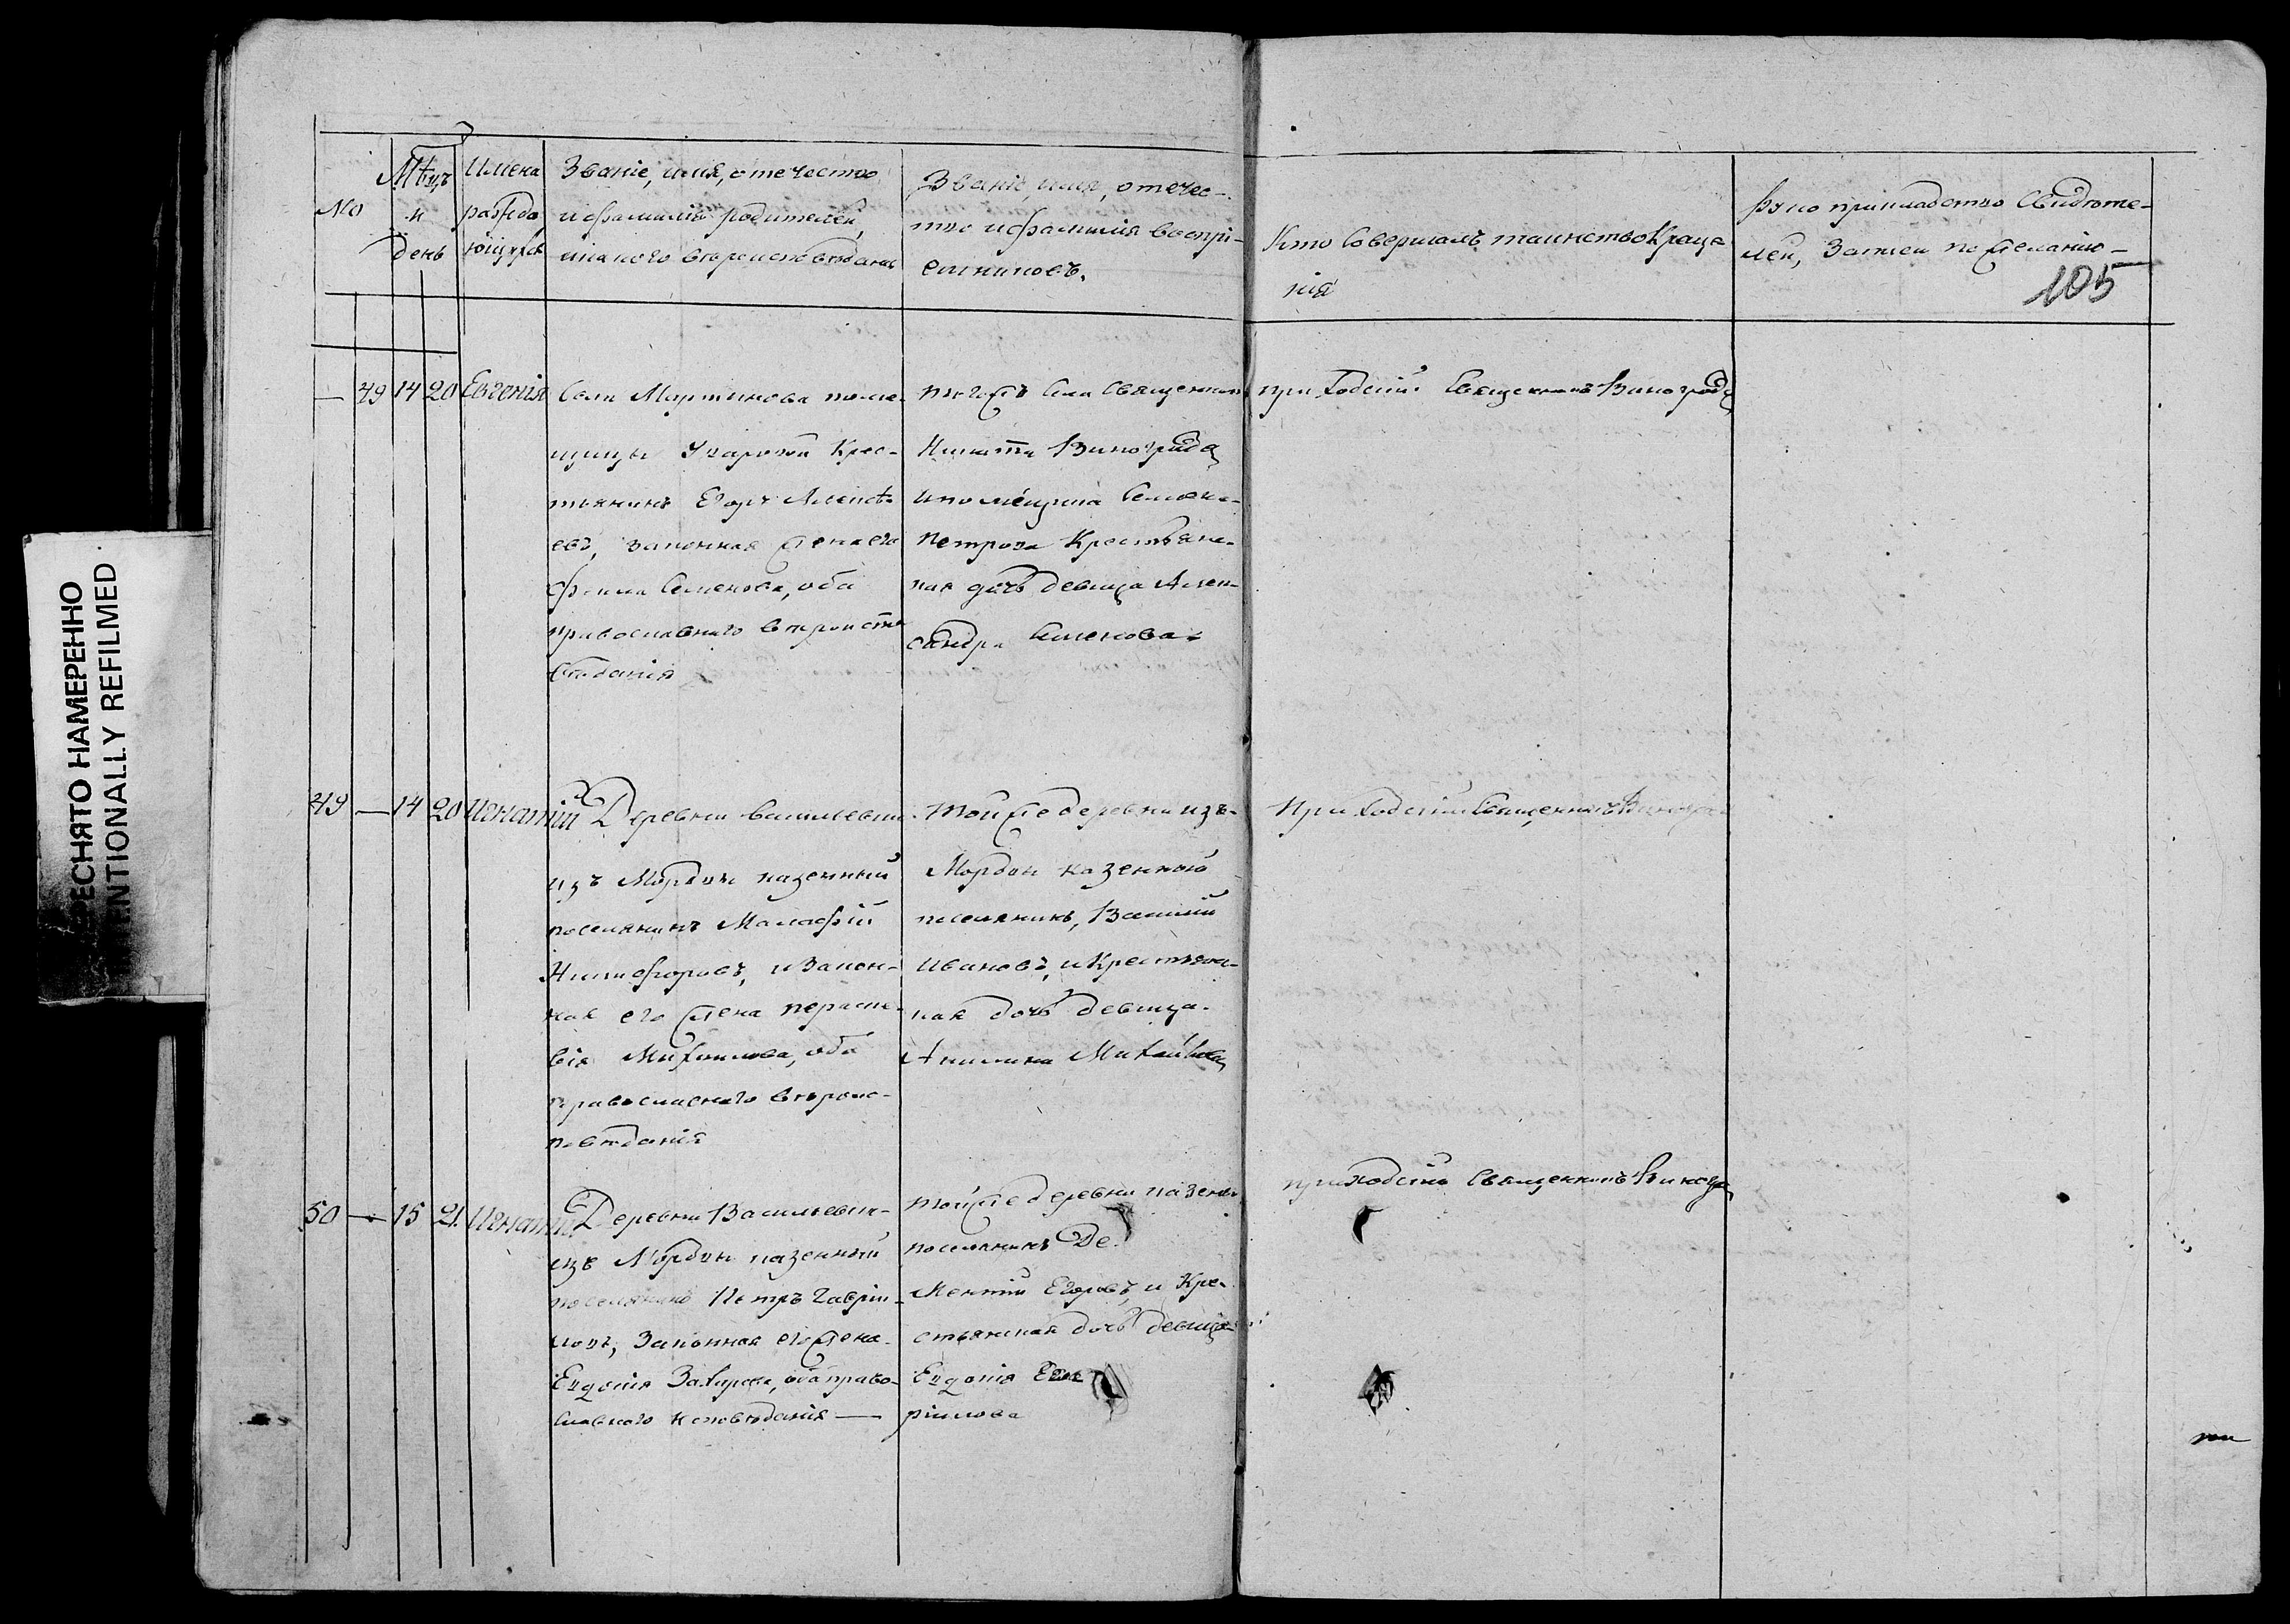 РЕСНЯТО НАМЕРЕННО
ENTIONALLY REFILMED
№
Мѣцъ
и
день
Имена
раждаю
ющихся
Званіе, имя, отчество
и фамилія родителей,
и какого вѣроисповѣданія
Званіе, имя, отечес-
тво и фамилія воспрі-
емниковъ.
Кто совершалъ таинство креще
нія
Рукоприкладство свидѣте-
лей, записи по желанію
105
— 49 14 20 Евгенія
Села Мартинова поме-
щицы Уваровой крес-
тьянинъ Егоръ Алексѣ
евъ, законная жена его
Семенова, оба
православнаго вѣроиспо
вѣданія
тогожъ села священникъ
Никита Виноградо
и помещика
Петрова крестьянс-
кая дочь девица Алек-
сандра Семенова
приходскій священникъ Виноградо
49 — 14 20 Игнатій
Деревни Василевки
изъ Мордвы казенный
поселянинъ Малафій
Никифоровъ, и закон-
ная его жена параске-
вія Михаилова, оба
православнаго вѣроис-
повѣданія
тойже деревни изъ
Мордвы казенной
поселянинъ, Василій
Ивановъ, и крестьянс-
кая дочь девица
Акилина Михайлова
приходскій священникъ Виногра
50 — 15 21 Игнатій
Деревни Василевки
изъ Мордвы казенный
поселянинъ Петръ Гаврі-
ловъ, законная его жена
Евдокія Захарова, оба право-
славного исповѣданія —
тойже деревни казен
поселянинъ Де
Ментій Егоровъ, и кре-
стьянская дочь девица
Евдокія
рилова
приходскій священникъ Виногра